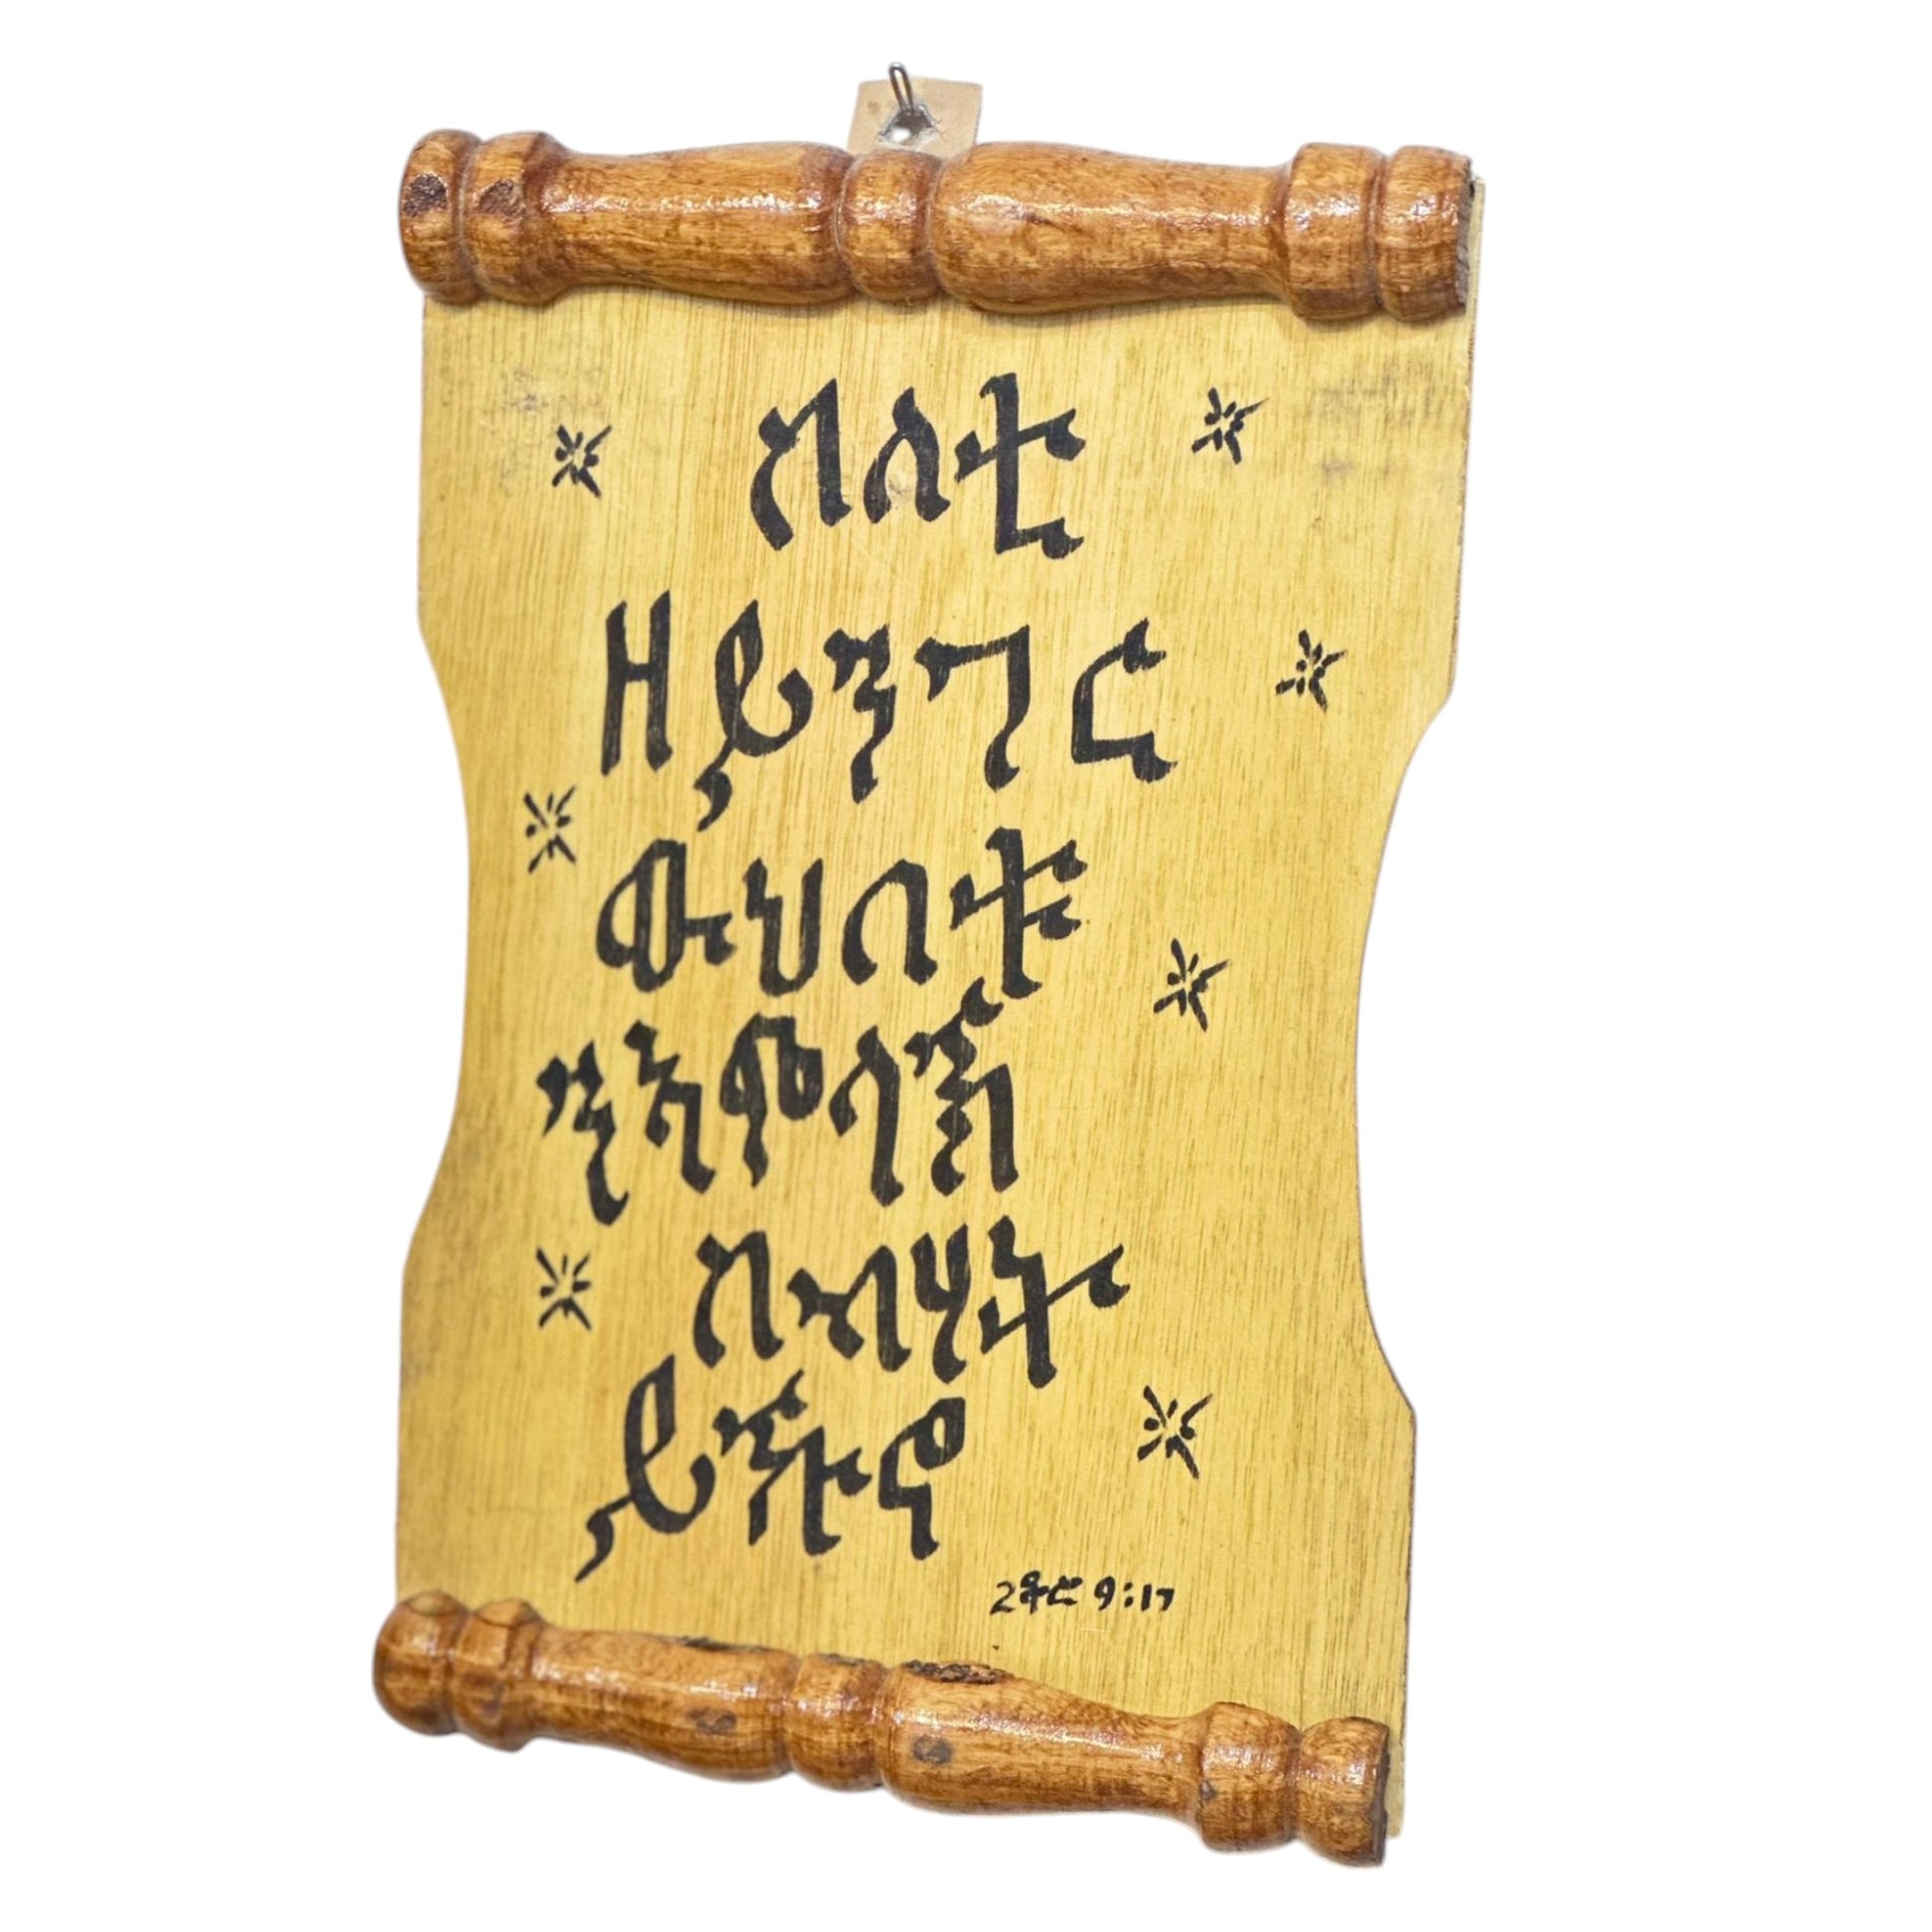 ስለቲ
ዘይንገር
ውህበቱ
ንኣምላኽ
ስብሃት
ይኹኖ
2ቆሮ 9:17